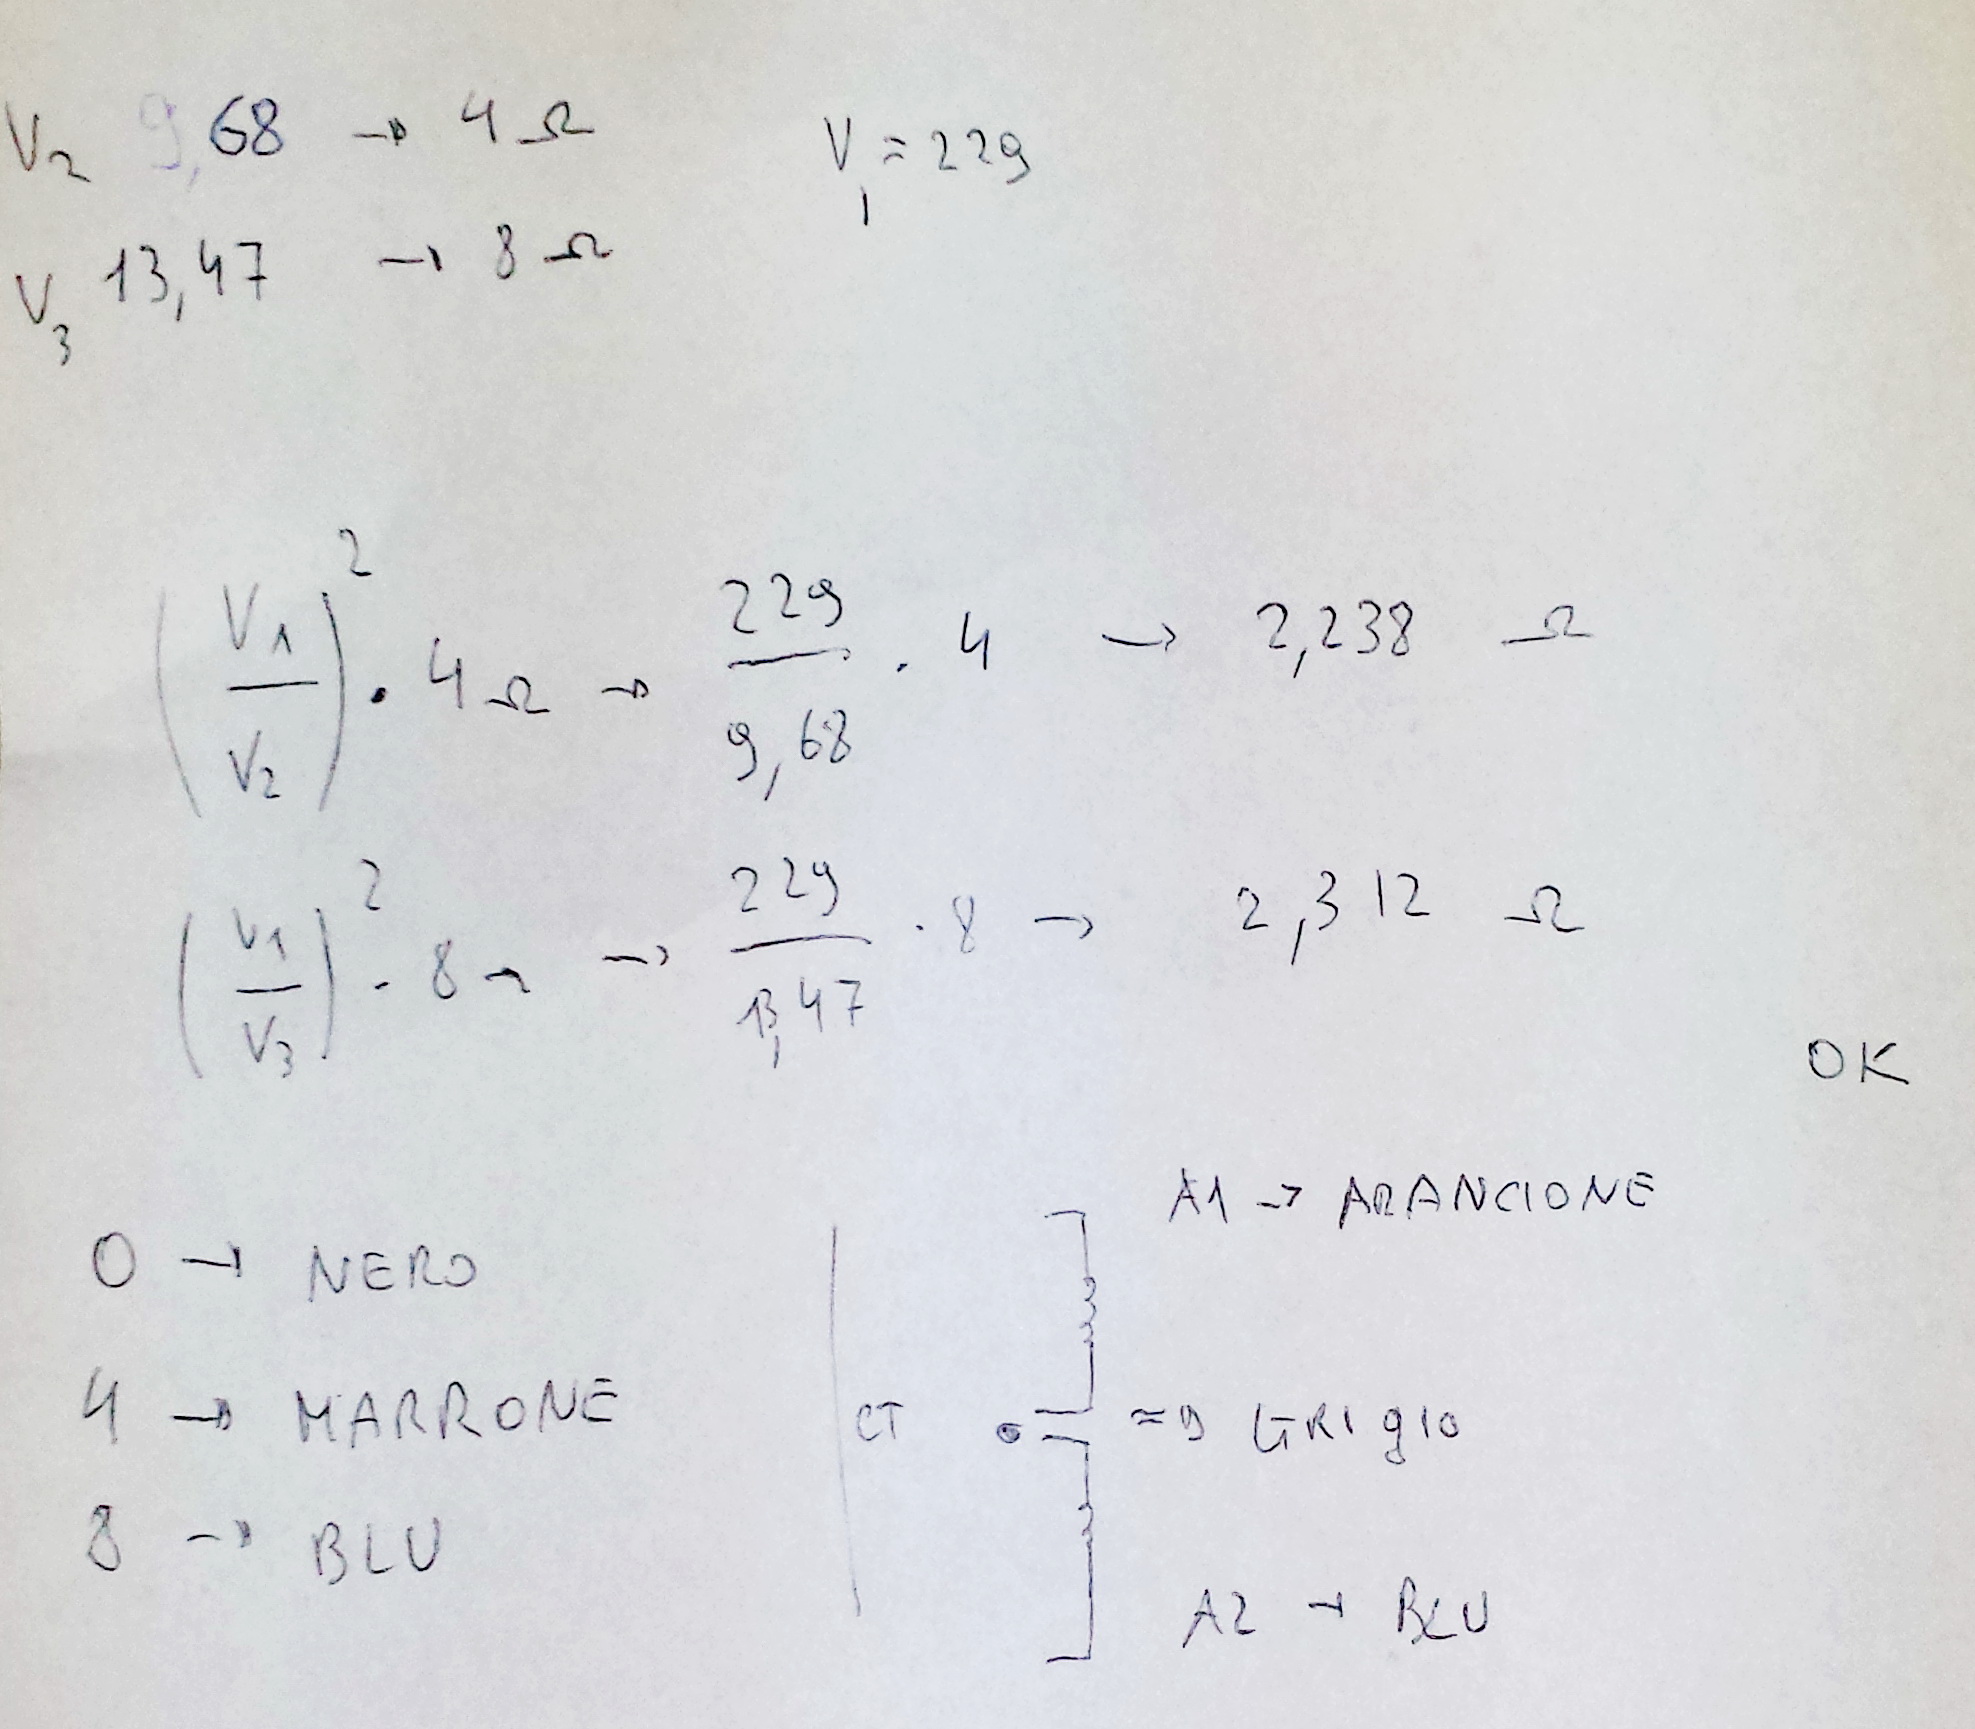 V₂ 9,68 → 4 Ω
V₁ = 229
V₃ 13,47 → 8 Ω
(V₁/V₂)² · 4 Ω → 229/9,68 · 4 → 2,238 Ω
(V₁/V₃)² · 8 Ω → 229/13,47 · 8 → 2,312 Ω
OK
0 → NERO
4 → MARRONE
8 → BLU
A1 → ARANCIONE
CT ⇒ GRIgIO
A2 → BLU